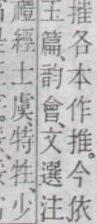 摧各本作推。今依
玉篇、韵會、文選注
禮經士虞、特牲、少